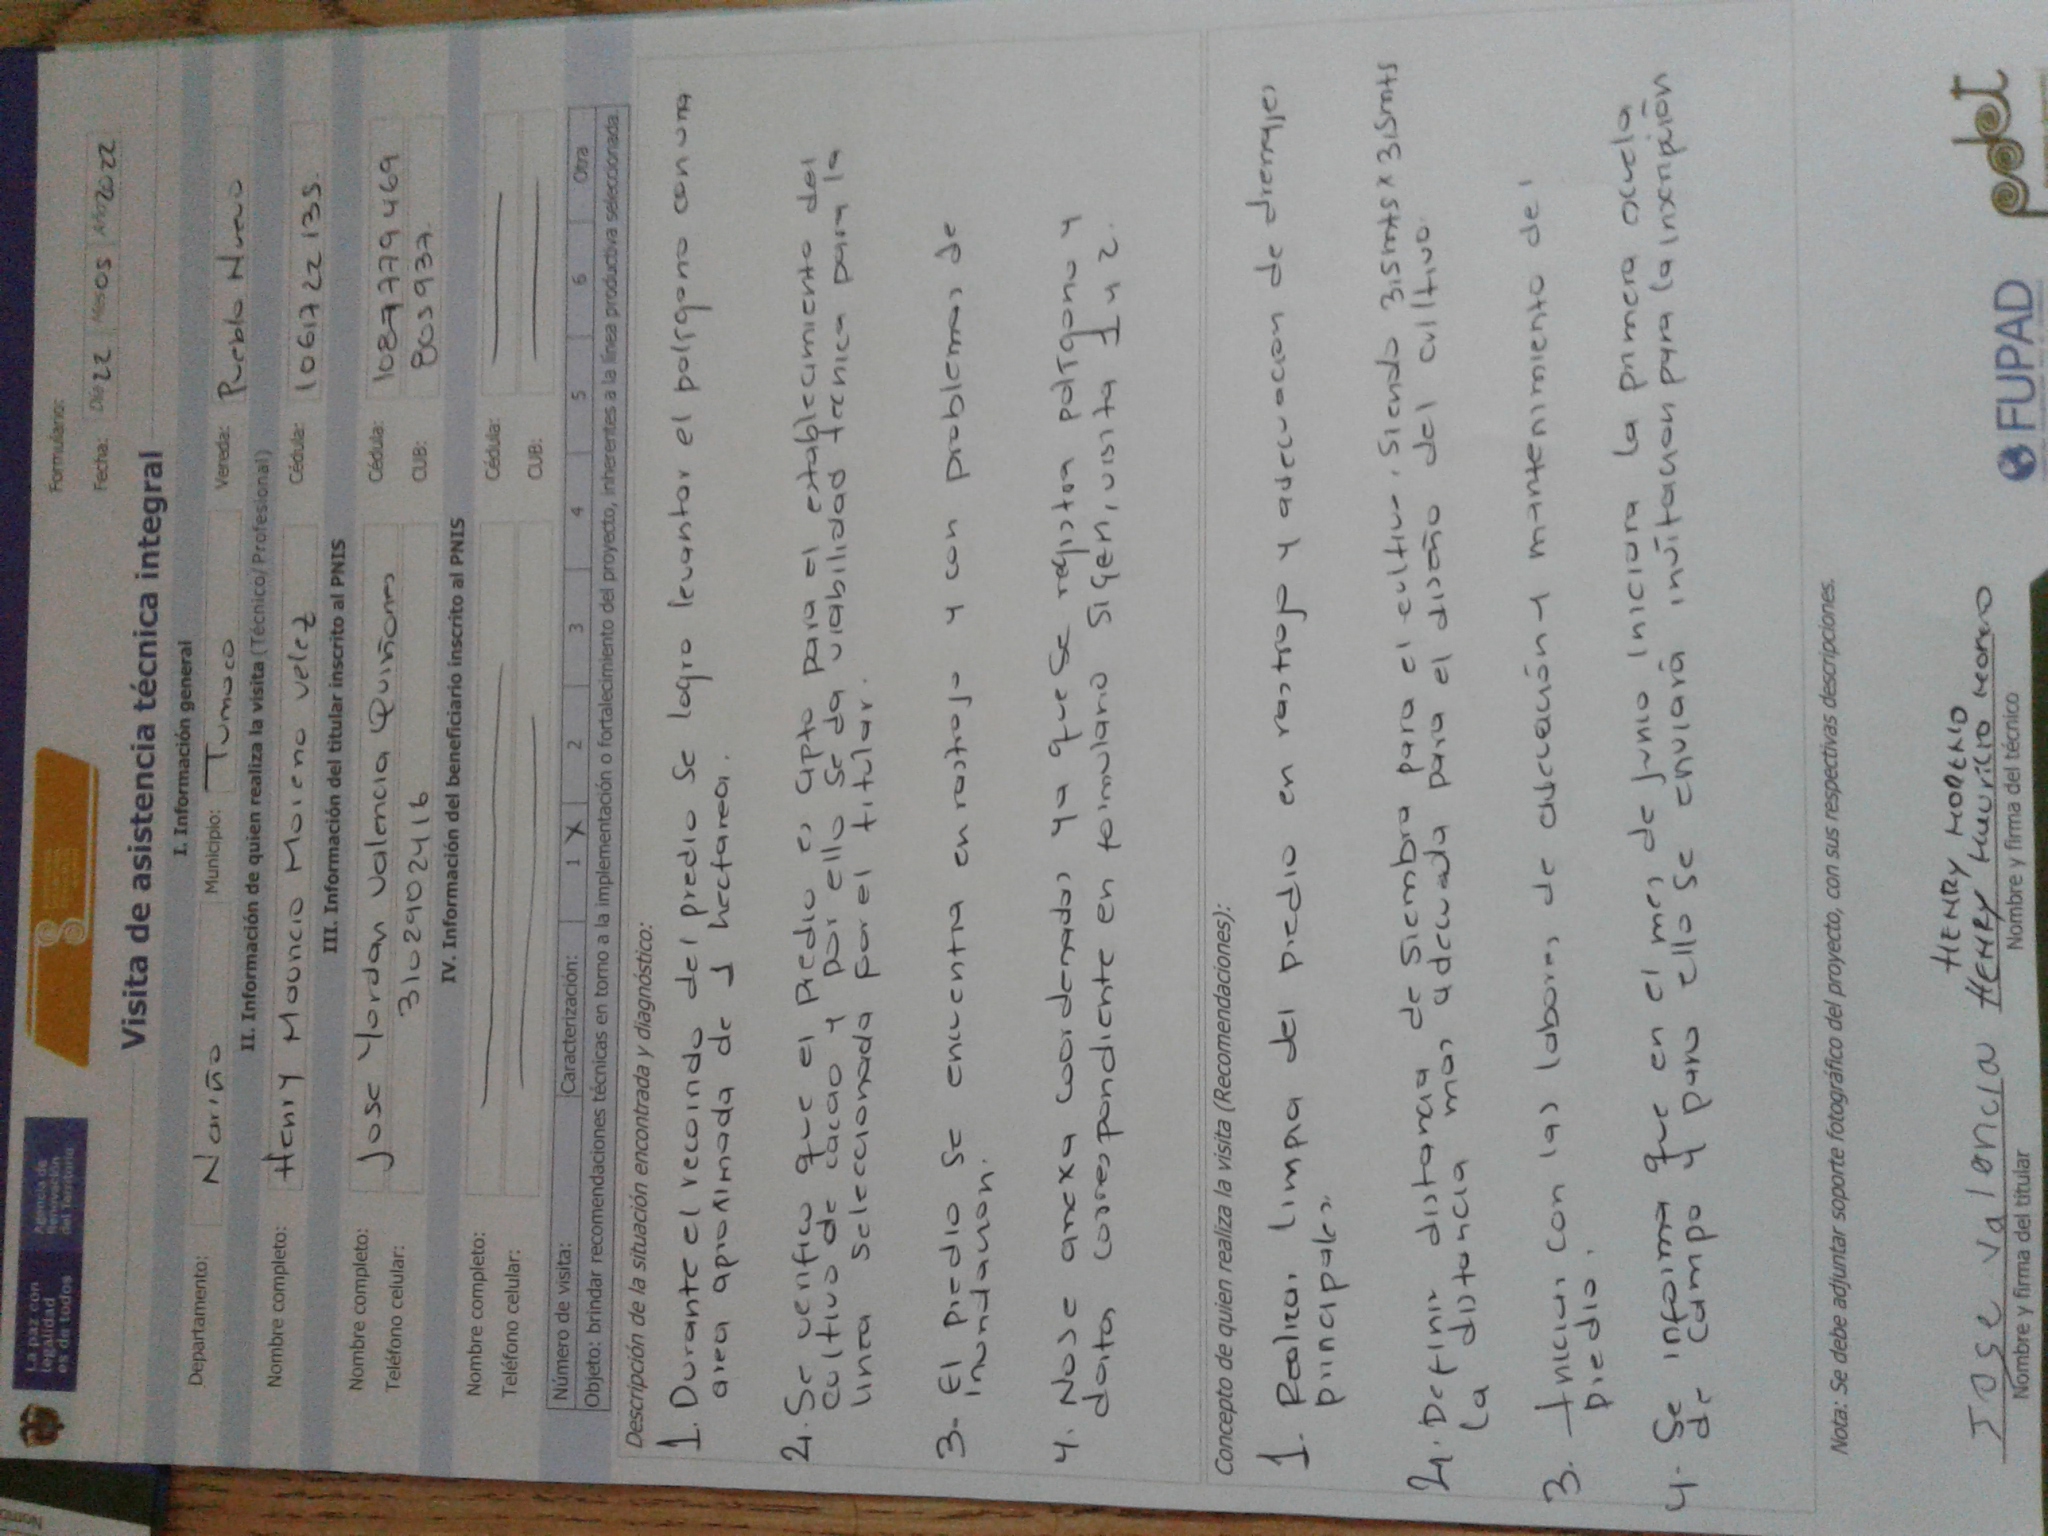 La paz con
legalidad
es de todos
Agencia de
Renovación
del Territorio
Formulario:
Fecha: Día 22 Mes 05 Año 2022
Visita de asistencia técnica integral
I. Información general
Departamento: Nariño Municipio: Tumaco Vereda: Pueblo Nuevo
II. Información de quien realiza la visita (Técnico/ Profesional)
Nombre completo: Henry Mauricio Moreno velez Cédula: 1061722135.
III. Información del titular inscrito al PNIS
Nombre completo: Jose Yordan Valencia Quiñones Cédula: 1087779469
Teléfono celular: 3102902416 CUB: 805937.
IV. Información del beneficiario inscrito al PNIS
Nombre completo: Cédula:
Teléfono celular: CUB:
Número de visita: Caracterización: 1 X 2 3 4 5 6 Otra
Objeto: brindar recomendaciones técnicas en torno a la implementación o fortalecimiento del proyecto, inherentes a la línea productiva seleccionada.
Descripción de la situación encontrada y diagnóstico:
1. Durante el recorrido del predio se logro levantar el poligono con una
area aproximada de 1 hectarea.
2. Se verifico que el Predio es apto para el establecimiento del
cultivo de cacao y por ello se da viabilidad técnica para la
linea seleccionada por el titular.
3. El predio se encuentra en rastrojo y con problemas de
inundacion.
4. No se anexa coordenadas ya que se registra poligono y
datos correspondiente en formulario SIGEN, visita 1 y 2.
Concepto de quien realiza la visita (Recomendaciones):
1. Realizar limpia del predio en rastrojo y adecuacion de drenajes
principales.
2. Definir distancia de siembra para el cultivo, siendo 3.5mts x 3.5mts
la distancia mas adecuada para el diseño del cultivo.
3. Iniciar con las labores de adecuación y mantenimiento del
predio.
4. Se informa que en el mes de junio iniciara la primera escuela
de campo y para ello se enviará invitacion para la inscripción
Nota: Se debe adjuntar soporte fotográfico del proyecto, con sus respectivas descripciones.
Jose valencia
Nombre y firma del titular
HENRY MORENO
HENRY MAURICIO MORENO
Nombre y firma del técnico
FUPAD
pdet